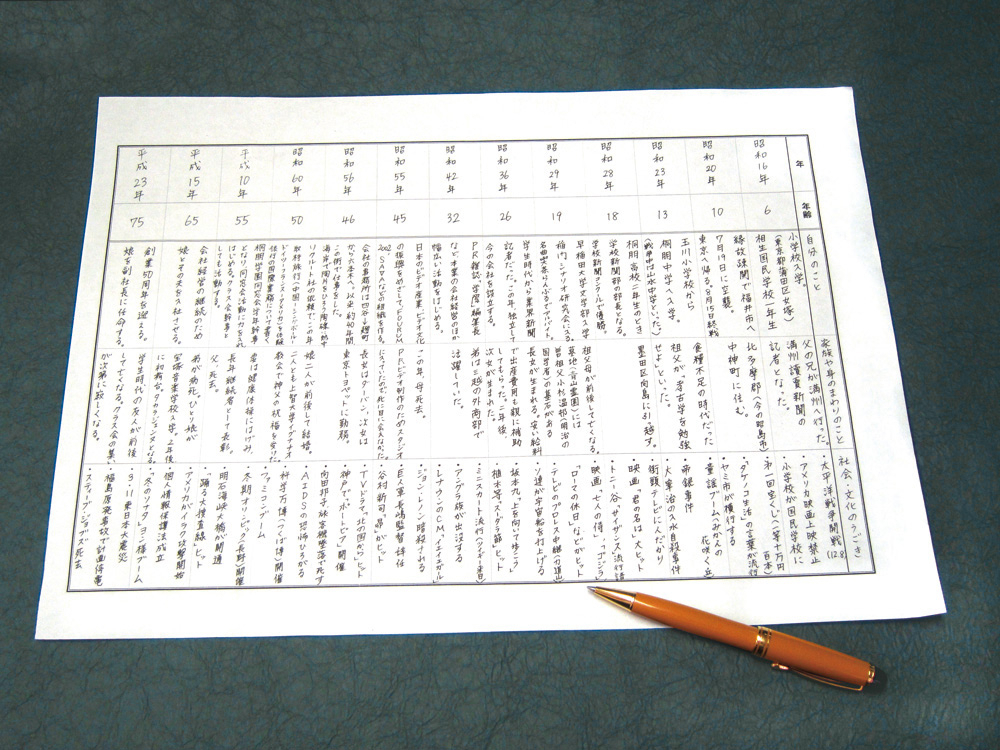 年
年齢
自分のこと
家族や身のまわりのこと
社会・文化のうごき
昭和16年
6
小学校入学。
(東京都蒲田区女塚)
相生国民学校一年生
父の兄が満州へ行った。
満州読売新聞の
記者となった。
・太平洋戦争開戦(12.8)
・アメリカ映画上映禁止
・小学校が国民学校に
昭和20年
10
縁故疎開で福井市へ
7月19日に空襲。
東京へ帰る。8月15日終戦
北多摩郡(今の昭島市)
中神町に住む。
食糧不足の時代だった
・第一回宝くじ(一等十万円
・タケノコ生活の言葉が流行
・ヤミ市が横行する
昭和23年
13
玉川小学校から
桐朋中学へ入学。
(戦中は山水中学といった)
祖父が、考古学を勉強
せよといった。
・童謡ブーム(みかんの
花咲く丘)
・帝銀事件
・太宰治の入水自殺事件
昭和28年
18
桐朋高校二年生のとき
学校新聞部の部長となる。
学校新聞コンクールで優勝。
墨田区向島に引っ越す。
・街頭テレビに人だかり
・映画「君の名は」大ヒット
・トニー谷「サイザンス」流行語
昭和29年
19
早稲田大学文学部入学
稲門シナリオ研究会に入る
名曲喫茶らんぶるでアルバイト。
祖父母が前後して亡くなる
墓地(谷山霊園)には
・映画「七人の侍」、「ゴジラ」
「ローマの休日」などがヒット
・テレビのプロレス中継(力道山)
昭和36年
26
学生時代から業界新聞
記者だった。この年、独立して
今の会社を設立する。
長女が生まれる。安い給料
で出産費用も親に補助
してもらった。二年後、
・ソ連が宇宙船を打上げる
・坂本九「上を向いて歩こう」
・植木等「スーダラ節」ヒット
昭和42年
32
PR雑誌「学窓」編集長
など本業の会社経営のほか
幅広い活動をはじめる。
次女が生まれ、
弟は三越の外商部で
活躍していた。
・ミニスカート流行(ツイギー来日)
・アングラ族が出没する
・レナウンのCM「イエイエガール」
昭和55年
45
日本のビデオ産業、ビデオ文化
の振興をめざして、FORUM
2002、SAVなどの組織を作る。
この年、母死去。
PRビデオ制作のためスタジオ
に入っていたので死に目に会えなかった。
・ジョン・レノン暗殺される
・巨人軍長嶋監督辞任
・谷村新司「昴」がヒット
昭和56年
46
会社の事務所は四谷、麹町
から六本木へ。以来、約40年間
この街で仕事をした。
長女はターバン、次女は
東京トヨペットに勤務。
・TVドラマ「北の国から」ヒット
・神戸で「ポートピア」開催
・向田邦子 旅客機墜落で死す
昭和60年
50
リクルート社の依頼で、この年
取材旅行(中国・シンガポール・
ドイツ・フランス・アメリカ)を体験
娘二人が前後して結婚。
二人とも上智大学でイグナチオ
教会で神父の祝福を受けた
・AIDSの恐怖ひろがる
・科学万博(つくば博)開催
・ファミコンブーム
平成10年
55
桐朋学園同窓会、学年幹事
となり、同窓会活動に力を入れ
はじめる。クラス会幹事と
しても活動する。
君は健康体操にはげみ、
長年継続者として表彰。
父、死去。
・冬期オリンピック(長野)開催
・明石海峡大橋が開通
・踊る大捜査線、ヒット
平成15年
65
会社経営の継続のため
娘とその夫を入社させる。
弟が病死。ひとり娘が
宝塚音楽学校入学。2年後
に初舞台。タカラジェンヌとなる。
・アメリカがイラク攻撃開始
・個人情報保護法成立
・「冬のソナタ」ヨン様ブーム
平成23年
75
創業50周年を迎える。
娘を副社長に任命する。
学生時代の友人が前後
して亡くなる。クラス会の集い
が次第に寂しくなる。
・3・11東日本大震災
・福島原発事故で計画停電
・スティーブ・ジョブズ死去